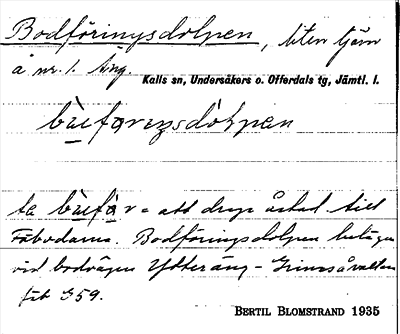 Bodföringsdolpen, liten tjärn
å nr. 1. Äng.
Kalls sn, Undersåkers o. Offerdals tg, Jämtl. l.
bùeförıŋsdòlpen
ta bùefòr = att draga åstad till
Fäbodarna. Bodföringsdolpen belägen
vid bodvägen Ytteräng - Grinnsåvallen
fäb 359.
BERTIL BLOMSTRAND 1935